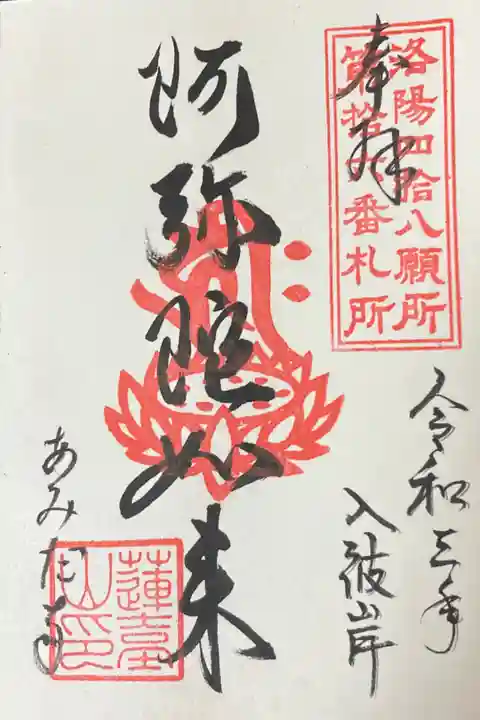 奉拝
洛陽四拾八願所
第拾六番札所
令和三年
入彼岸
阿弥陀如来
あみだ寺
蓮台山印